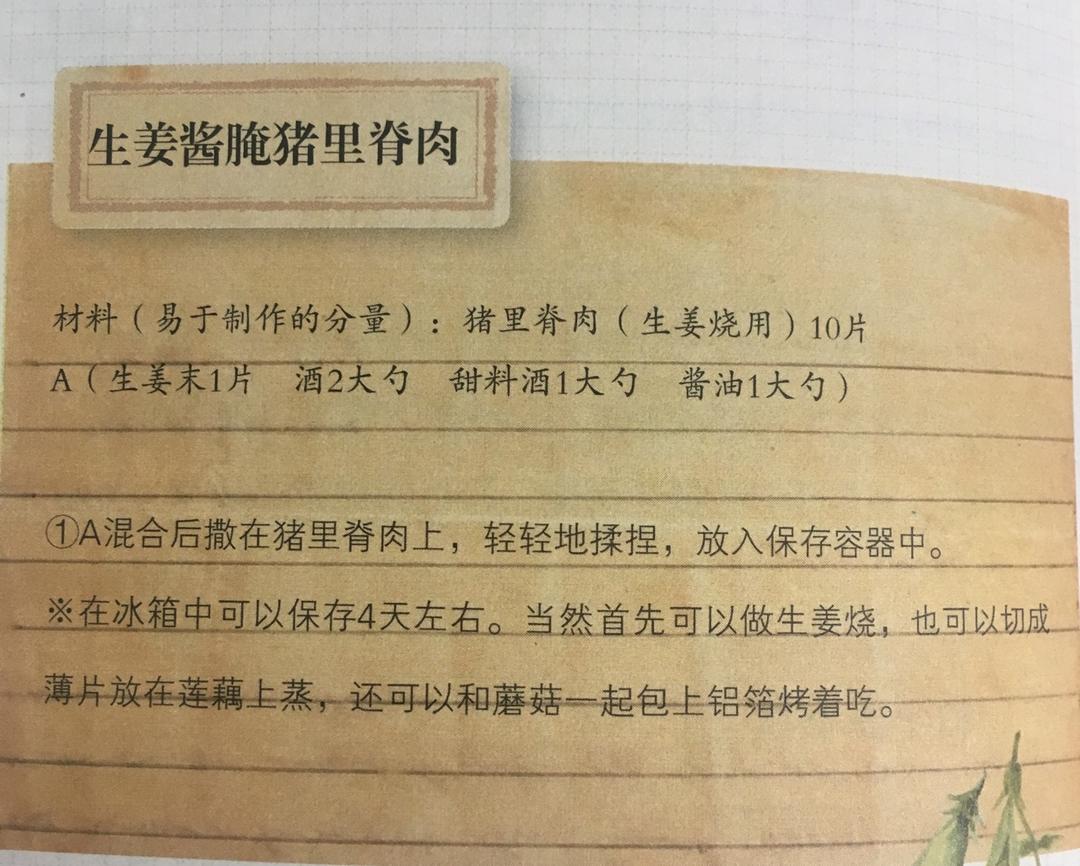 生姜酱腌猪里脊肉
材料（易于制作的分量）：猪里脊肉（生姜烧用）10片
A（生姜末1片　酒2大勺　甜料酒1大勺　酱油1大勺）
①A混合后撒在猪里脊肉上，轻轻地揉捏，放入保存容器中。
※在冰箱中可以保存4天左右。当然首先可以做生姜烧，也可以切成
薄片放在莲藕上蒸，还可以和蘑菇一起包上铝箔烤着吃。